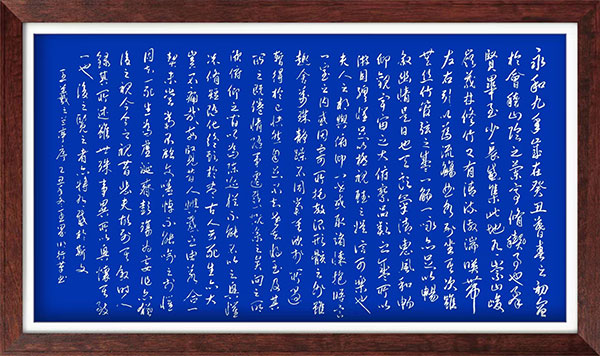 永和九年歲在癸丑暮春之初會
於會稽山陰之蘭亭脩禊事也群
賢畢至少長咸集此地有崇山峻
嶺茂林修竹又有清流激湍暎帶
左右引以為流觴曲水列坐其次雖
無絲竹管弦之盛一觴一詠亦足以暢
敘幽情是日也天朗氣清惠風和暢
仰觀宇宙之大俯察品類之盛所以
遊目騁懷足以極視聽之娛信可樂也
夫人之相與俯仰一世或取諸懷抱晤言
一室之內或因寄所託放浪形骸之外雖
趣舍萬殊靜躁不同當其欣於所遇
暫得於己快然自足不知老之將至及其
所之既倦情隨事遷感慨係之矣向之所
欣俛仰之間以為陳迹猶不能不以之興懷
況脩短隨化終期於盡古人云死生亦大
矣豈不痛哉每覽昔人興感之由若合一
契未嘗不臨文嗟悼不能喻之於懷
固知一死生為虛誕齊彭殤為妄作
後之視今亦今之視昔悲夫故列敘時人
錄其所述雖世殊事異所以興懷其致
一也後之覽者亦將有感於斯文
王羲之蘭亭序